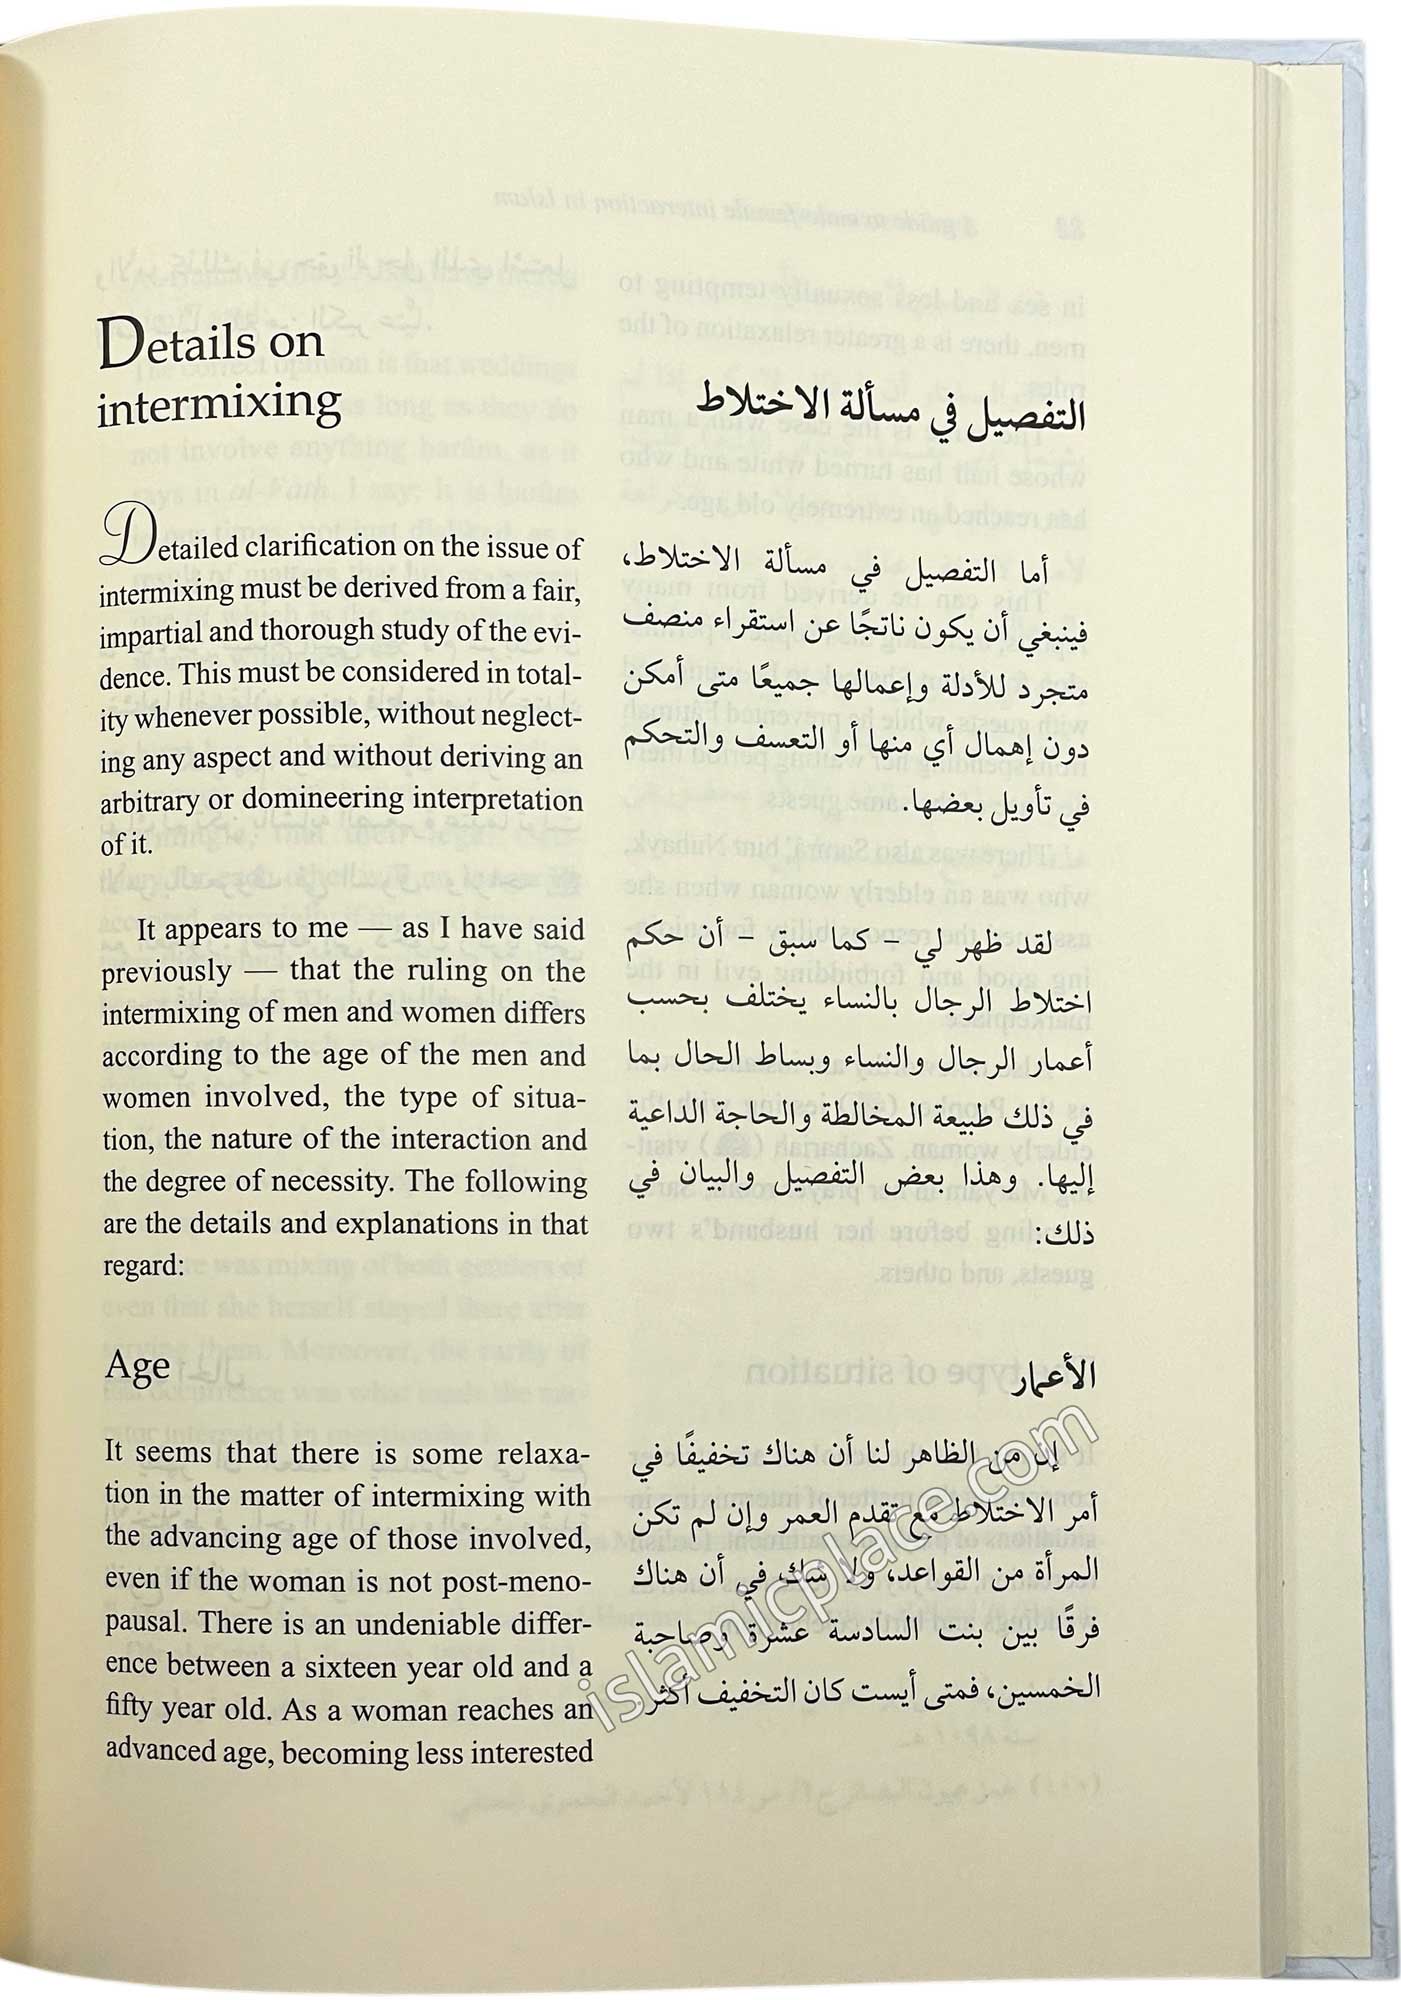 Details on
intermixing
Detailed clarification on the issue of
intermixing must be derived from a fair,
impartial and thorough study of the evi-
dence. This must be considered in total-
ity whenever possible, without neglect-
ing any aspect and without deriving an
arbitrary or domineering interpretation
of it.
It appears to me — as I have said
previously — that the ruling on the
intermixing of men and women differs
according to the age of the men and
women involved, the type of situa-
tion, the nature of the interaction and
the degree of necessity. The following
are the details and explanations in that
regard:
Age
It seems that there is some relaxa-
tion in the matter of intermixing with
the advancing age of those involved,
even if the woman is not post-meno-
pausal. There is an undeniable differ-
ence between a sixteen year old and a
fifty year old. As a woman reaches an
advanced age, becoming less interested
التفصيل في مسألة الاختلاط
أما التفصيل في مسألة الاختلاط،
فينبغي أن يكون ناتجًا عن استقراء منصف
متجرد للأدلة وإعمالها جميعًا متى أمكن
دون إهمال أي منها أو التعسف والتحكم
في تأويل بعضها.
لقد ظهر لي – كما سبق – أن حكم
اختلاط الرجال بالنساء يختلف بحسب
أعمار الرجال والنساء وبساط الحال بما
في ذلك طبيعة المخالطة والحاجة الداعية
إليها. وهذا بعض التفصيل والبيان في
ذلك:
الأعمار
إن من الظاهر لنا أن هناك تخفيفًا في
أمر الاختلاط مع تقدم العمر وإن لم تكن
المرأة من القواعد، ولا شك في أن هناك
فرقًا بين بنت السادسة عشرة وصاحبة
الخمسين، فمتى أيست كان التخفيف أكثر.
islamicplace.com